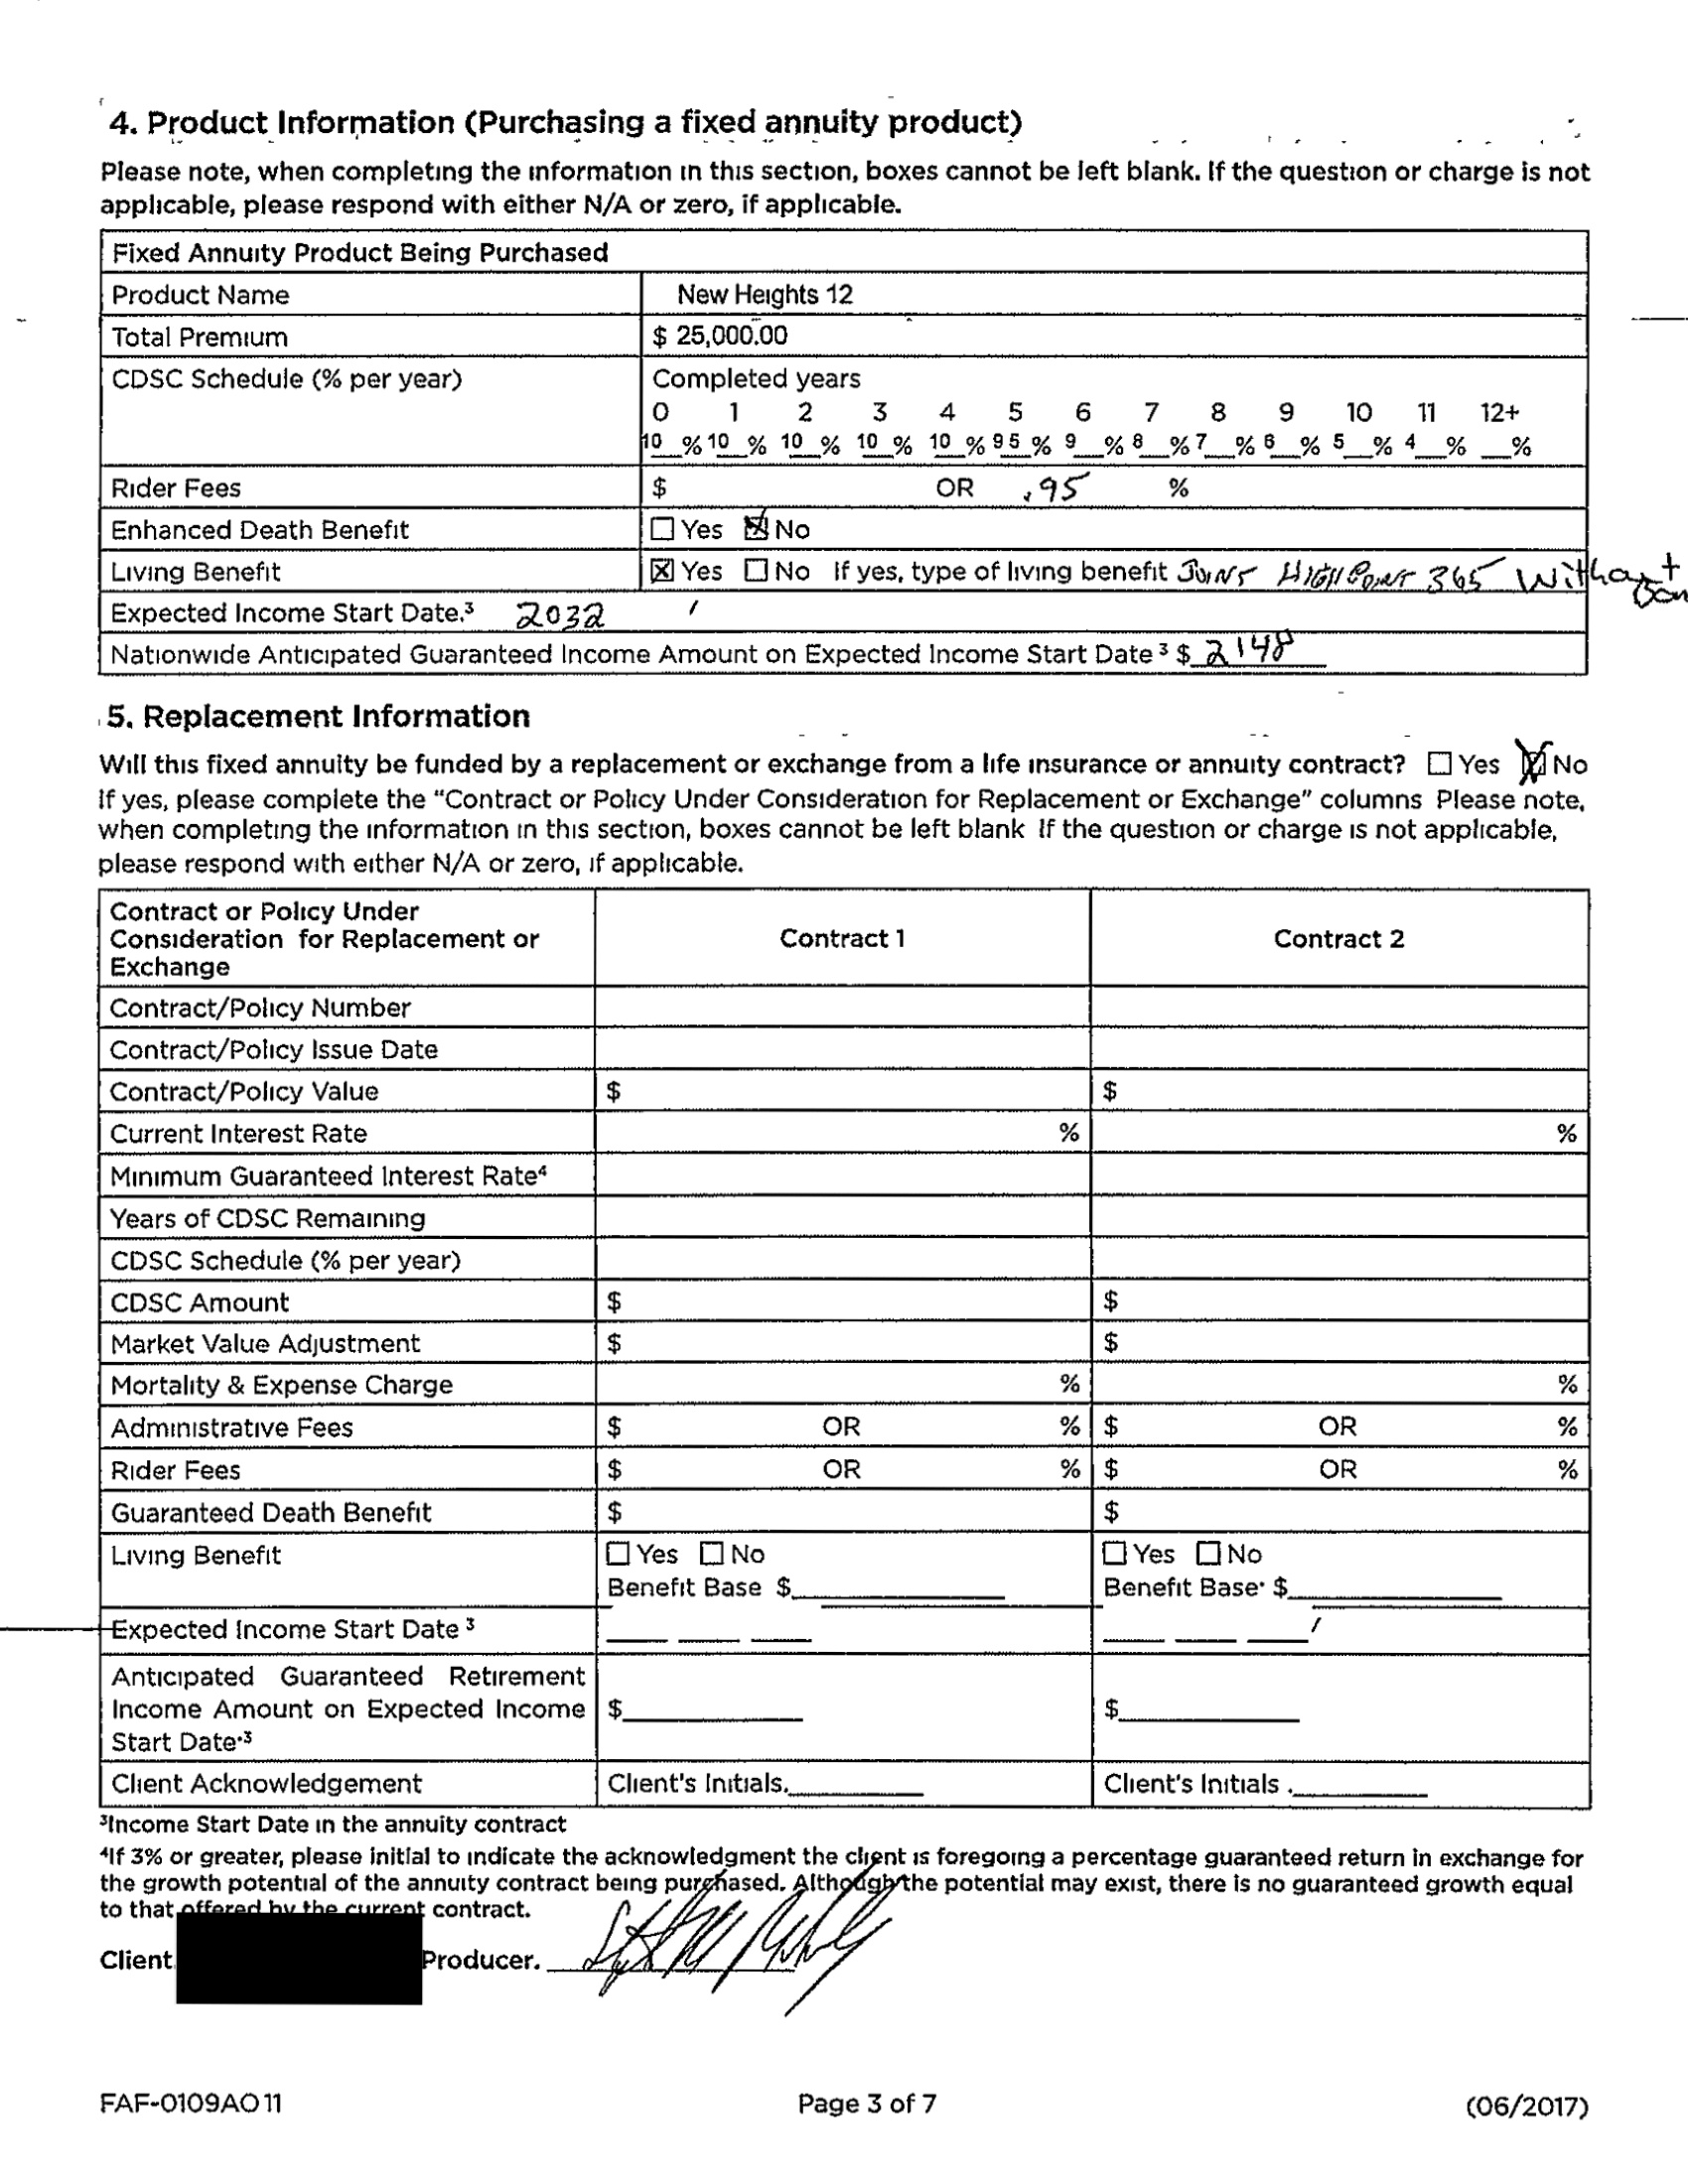 4. Product Information (Purchasing a fixed annuity product)
Please note, when completing the information in this section, boxes cannot be left blank. If the question or charge is not
applicable, please respond with either N/A or zero, if applicable.
Fixed Annuity Product Being Purchased
Product Name New Heights 12
Total Premium $ 25,000.00
CDSC Schedule (% per year) Completed years
0 1 2 3 4 5 6 7 8 9 10 11 12+
10 % 10 % 10 % 10 % 10 % 9 5 % 9 % 8 % 7 % 6 % 5 % 4 % %
Rider Fees $ OR .95 %
Enhanced Death Benefit ☐ Yes ☒ No
Living Benefit ☒ Yes ☐ No If yes, type of living benefit JOINT HIGH POINT 365 Without
Expected Income Start Date.³ 2032
Nationwide Anticipated Guaranteed Income Amount on Expected Income Start Date ³ $ 2148
5. Replacement Information
Will this fixed annuity be funded by a replacement or exchange from a life insurance or annuity contract? ☐ Yes ☒ No
If yes, please complete the “Contract or Policy Under Consideration for Replacement or Exchange” columns Please note,
when completing the information in this section, boxes cannot be left blank If the question or charge is not applicable,
please respond with either N/A or zero, if applicable.
Contract or Policy Under
Consideration for Replacement or
Exchange
Contract 1 Contract 2
Contract/Policy Number
Contract/Policy Issue Date
Contract/Policy Value $ $
Current Interest Rate % %
Minimum Guaranteed Interest Rate⁴
Years of CDSC Remaining
CDSC Schedule (% per year)
CDSC Amount $ $
Market Value Adjustment $ $
Mortality & Expense Charge % %
Administrative Fees $ OR % $ OR %
Rider Fees $ OR % $ OR %
Guaranteed Death Benefit $ $
Living Benefit ☐ Yes ☐ No ☐ Yes ☐ No
Benefit Base $ Benefit Base· $
Expected Income Start Date ³
Anticipated Guaranteed Retirement
Income Amount on Expected Income $ $
Start Date·³
Client Acknowledgement Client's Initials. Client's Initials .
³Income Start Date in the annuity contract
⁴If 3% or greater, please initial to indicate the acknowledgment the client is foregoing a percentage guaranteed return in exchange for
the growth potential of the annuity contract being purchased. Although the potential may exist, there is no guaranteed growth equal
to that offered by the current contract.
Client Producer.
FAF-0109AO 11 Page 3 of 7 (06/2017)